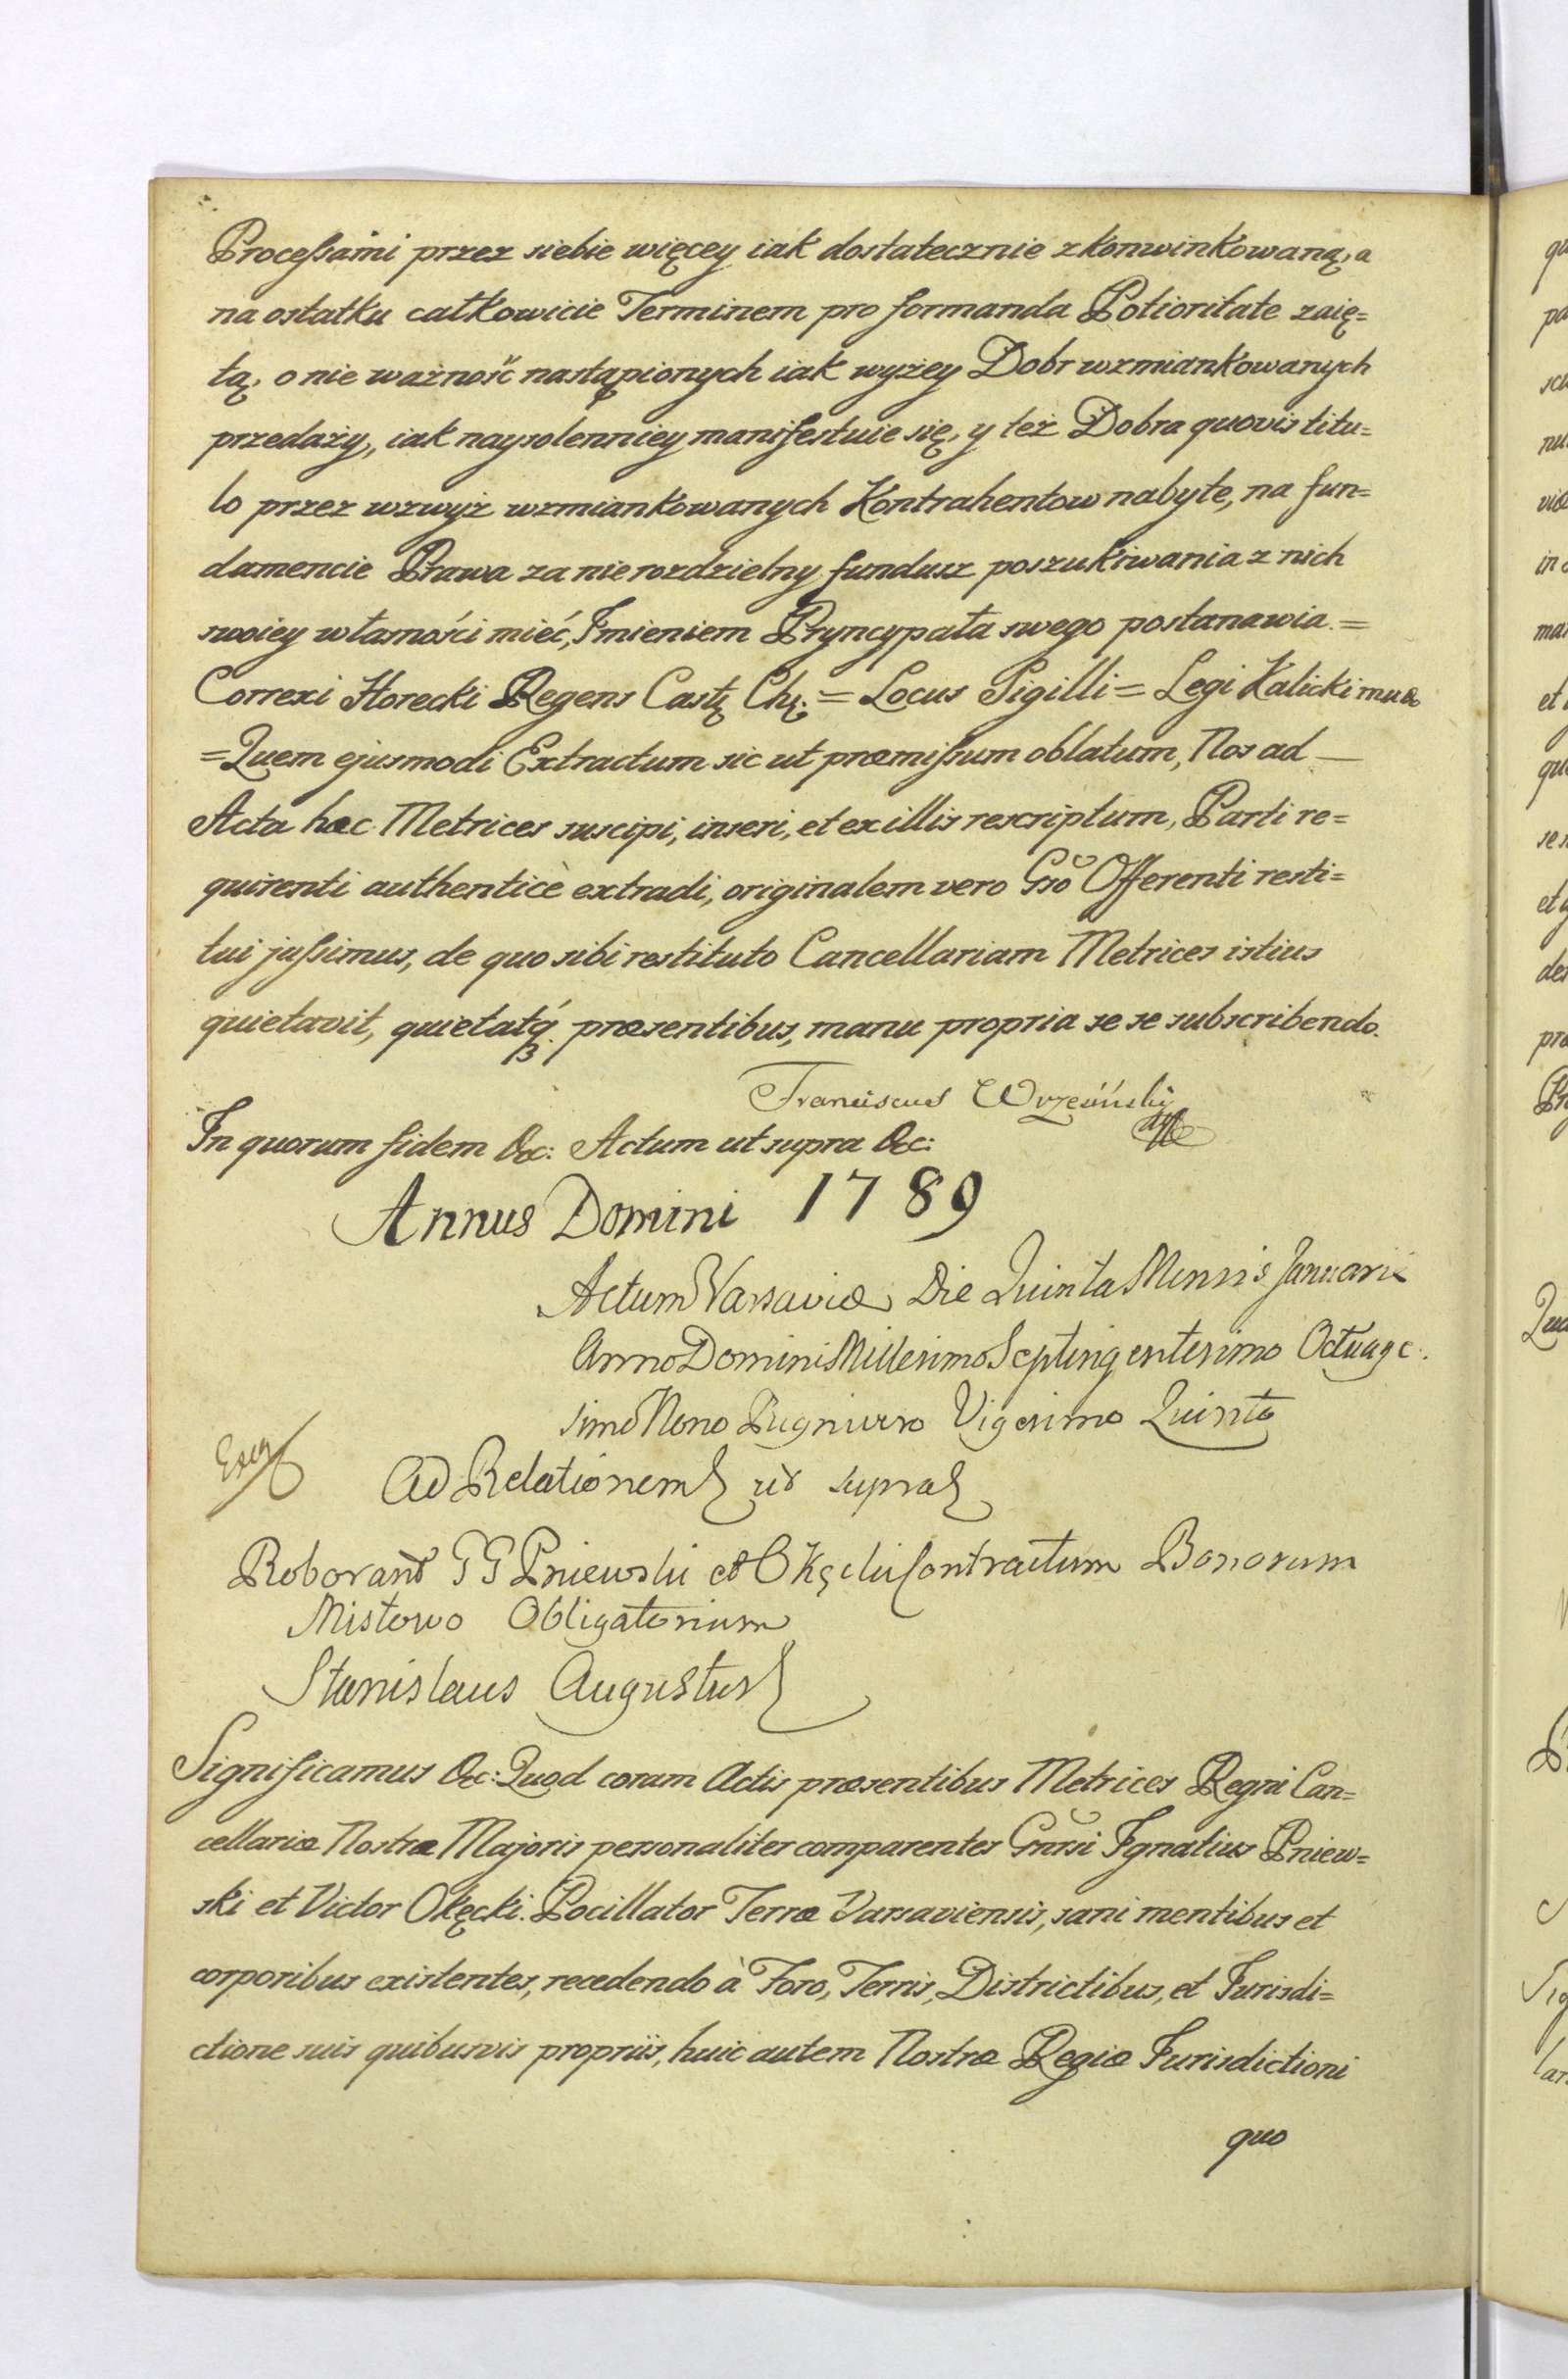 Processami przez siebie więcey iak dostatecznie zkonwinkowaną, a
na ostatku całkowicie Terminem pro formanda Potioritate zaię=
tą, o nie ważność nastąpionych iak wyżey Dobr wzmiankowanych
przedaży, iak naysolenniey manifestuie się, y też Dobra quovis titu=
lo przez wzwyż wzmiankowanych Kontrahentow nabyte, na fun=
damencie Prawa za nierozdzielny fundusz poszukiwania z nich
swoiey własności mieć, Imieniem Pryncypała swego postanawia. =
Correxi Horecki Regens Castr Chę: = Locus Sigilli = Legi Kalicki
= Quem ejusmodi Extractum sic ut præmissum oblatum, Nos ad —
Acta hæc Metrices suscipi, inseri, et ex illis rescriptum, Parti re=
quirenti authenticè extradi, originalem vero Gso Offerenti resti=
tui jussimus, de quo sibi restituto Cancellariam Metrices istius
quietavit, quietatq præsentibus, manu propria se se subscribendo.
Franciscus Wrzesiński
In quorum fidem &c: Actum ut supra &c:
Annus Domini 1789
Actum Varsaviæ Die Quinta Mensis Januarii
Anno Domini Millesimo Septingentesimo Octuage:
simo Nono Regni vero Vigesimo Quinto
Ad Relationem ut supra
Roborant GG Pniewski et Okęcki Contractum Bonorum
Mistowo Obligatorium
Stanislaus Augustus
Significamus &c: Quod coram Actis præsentibus Metrices Regni Can=
cellariæ Nostræ Majoris personaliter comparentes Gnrsi Ignatius Pniew=
ski et Victor Okęcki. Pocillator Terræ Varsaviensis, sani mentibus et
corporibus existentes, recedendo à Foro, Terris, Districtibus, et Jurisdi=
ctione suis quibusvis propriis, huic autem Nostræ Regiæ Jurisdictioni
quo